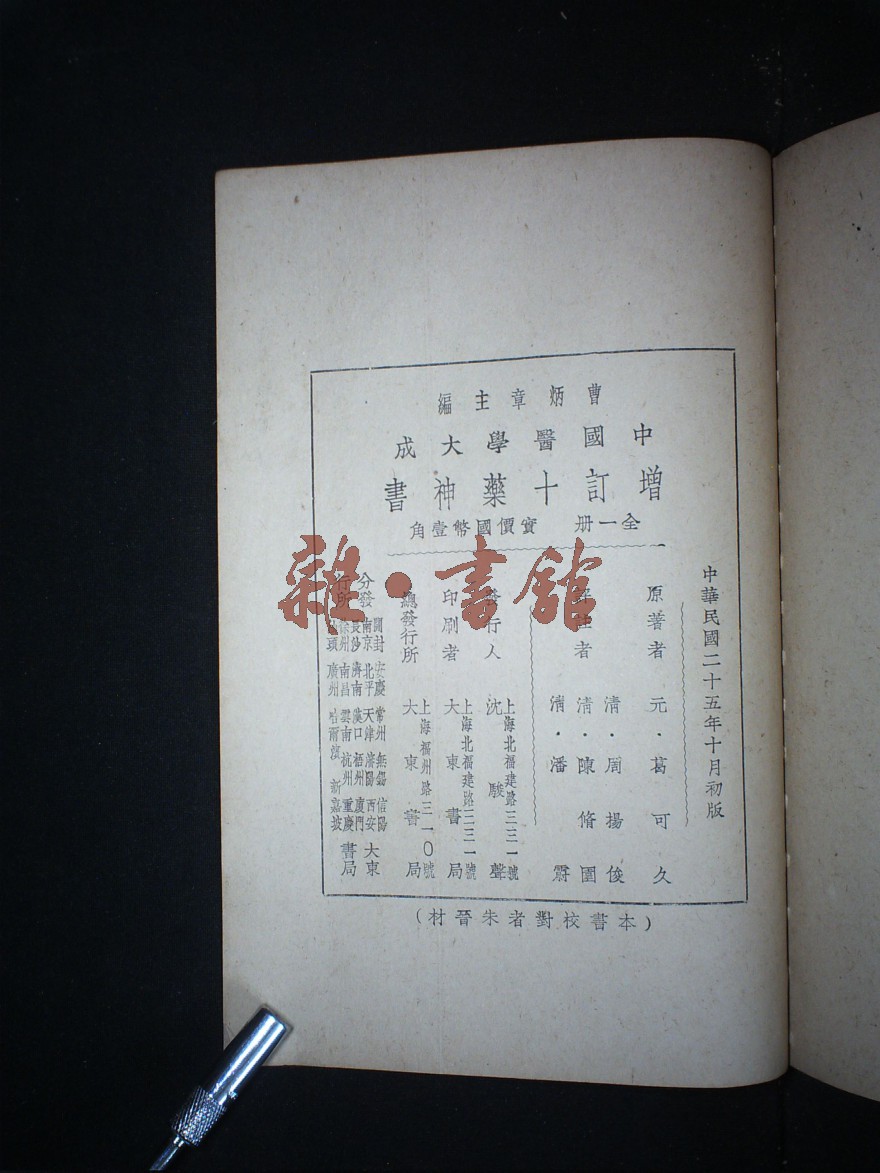 曹炳章主編
中國醫學大成
增訂十藥神書
全一册 實價國幣壹角
中華民國二十五年十月初版
原著者 元·葛可久
者 清·周揚俊
清·陳脩園
清·潘霨
發行人 上海北福建路三三一號
沈駿聲
印刷者 上海北福建路三三一號
大東書局
總發行所 上海福州路三一〇號
大東書局
分發行所
開封 安慶 常州 無錫 信陽
南京 北平 天津 瀋陽 西安
長沙 濟南 漢口 梧州 廈門
徐州 南昌 雲南 杭州 重慶
頭 廣州 哈爾濱 新嘉坡
大東書局
(本書校對者朱晉材)
雜·書館